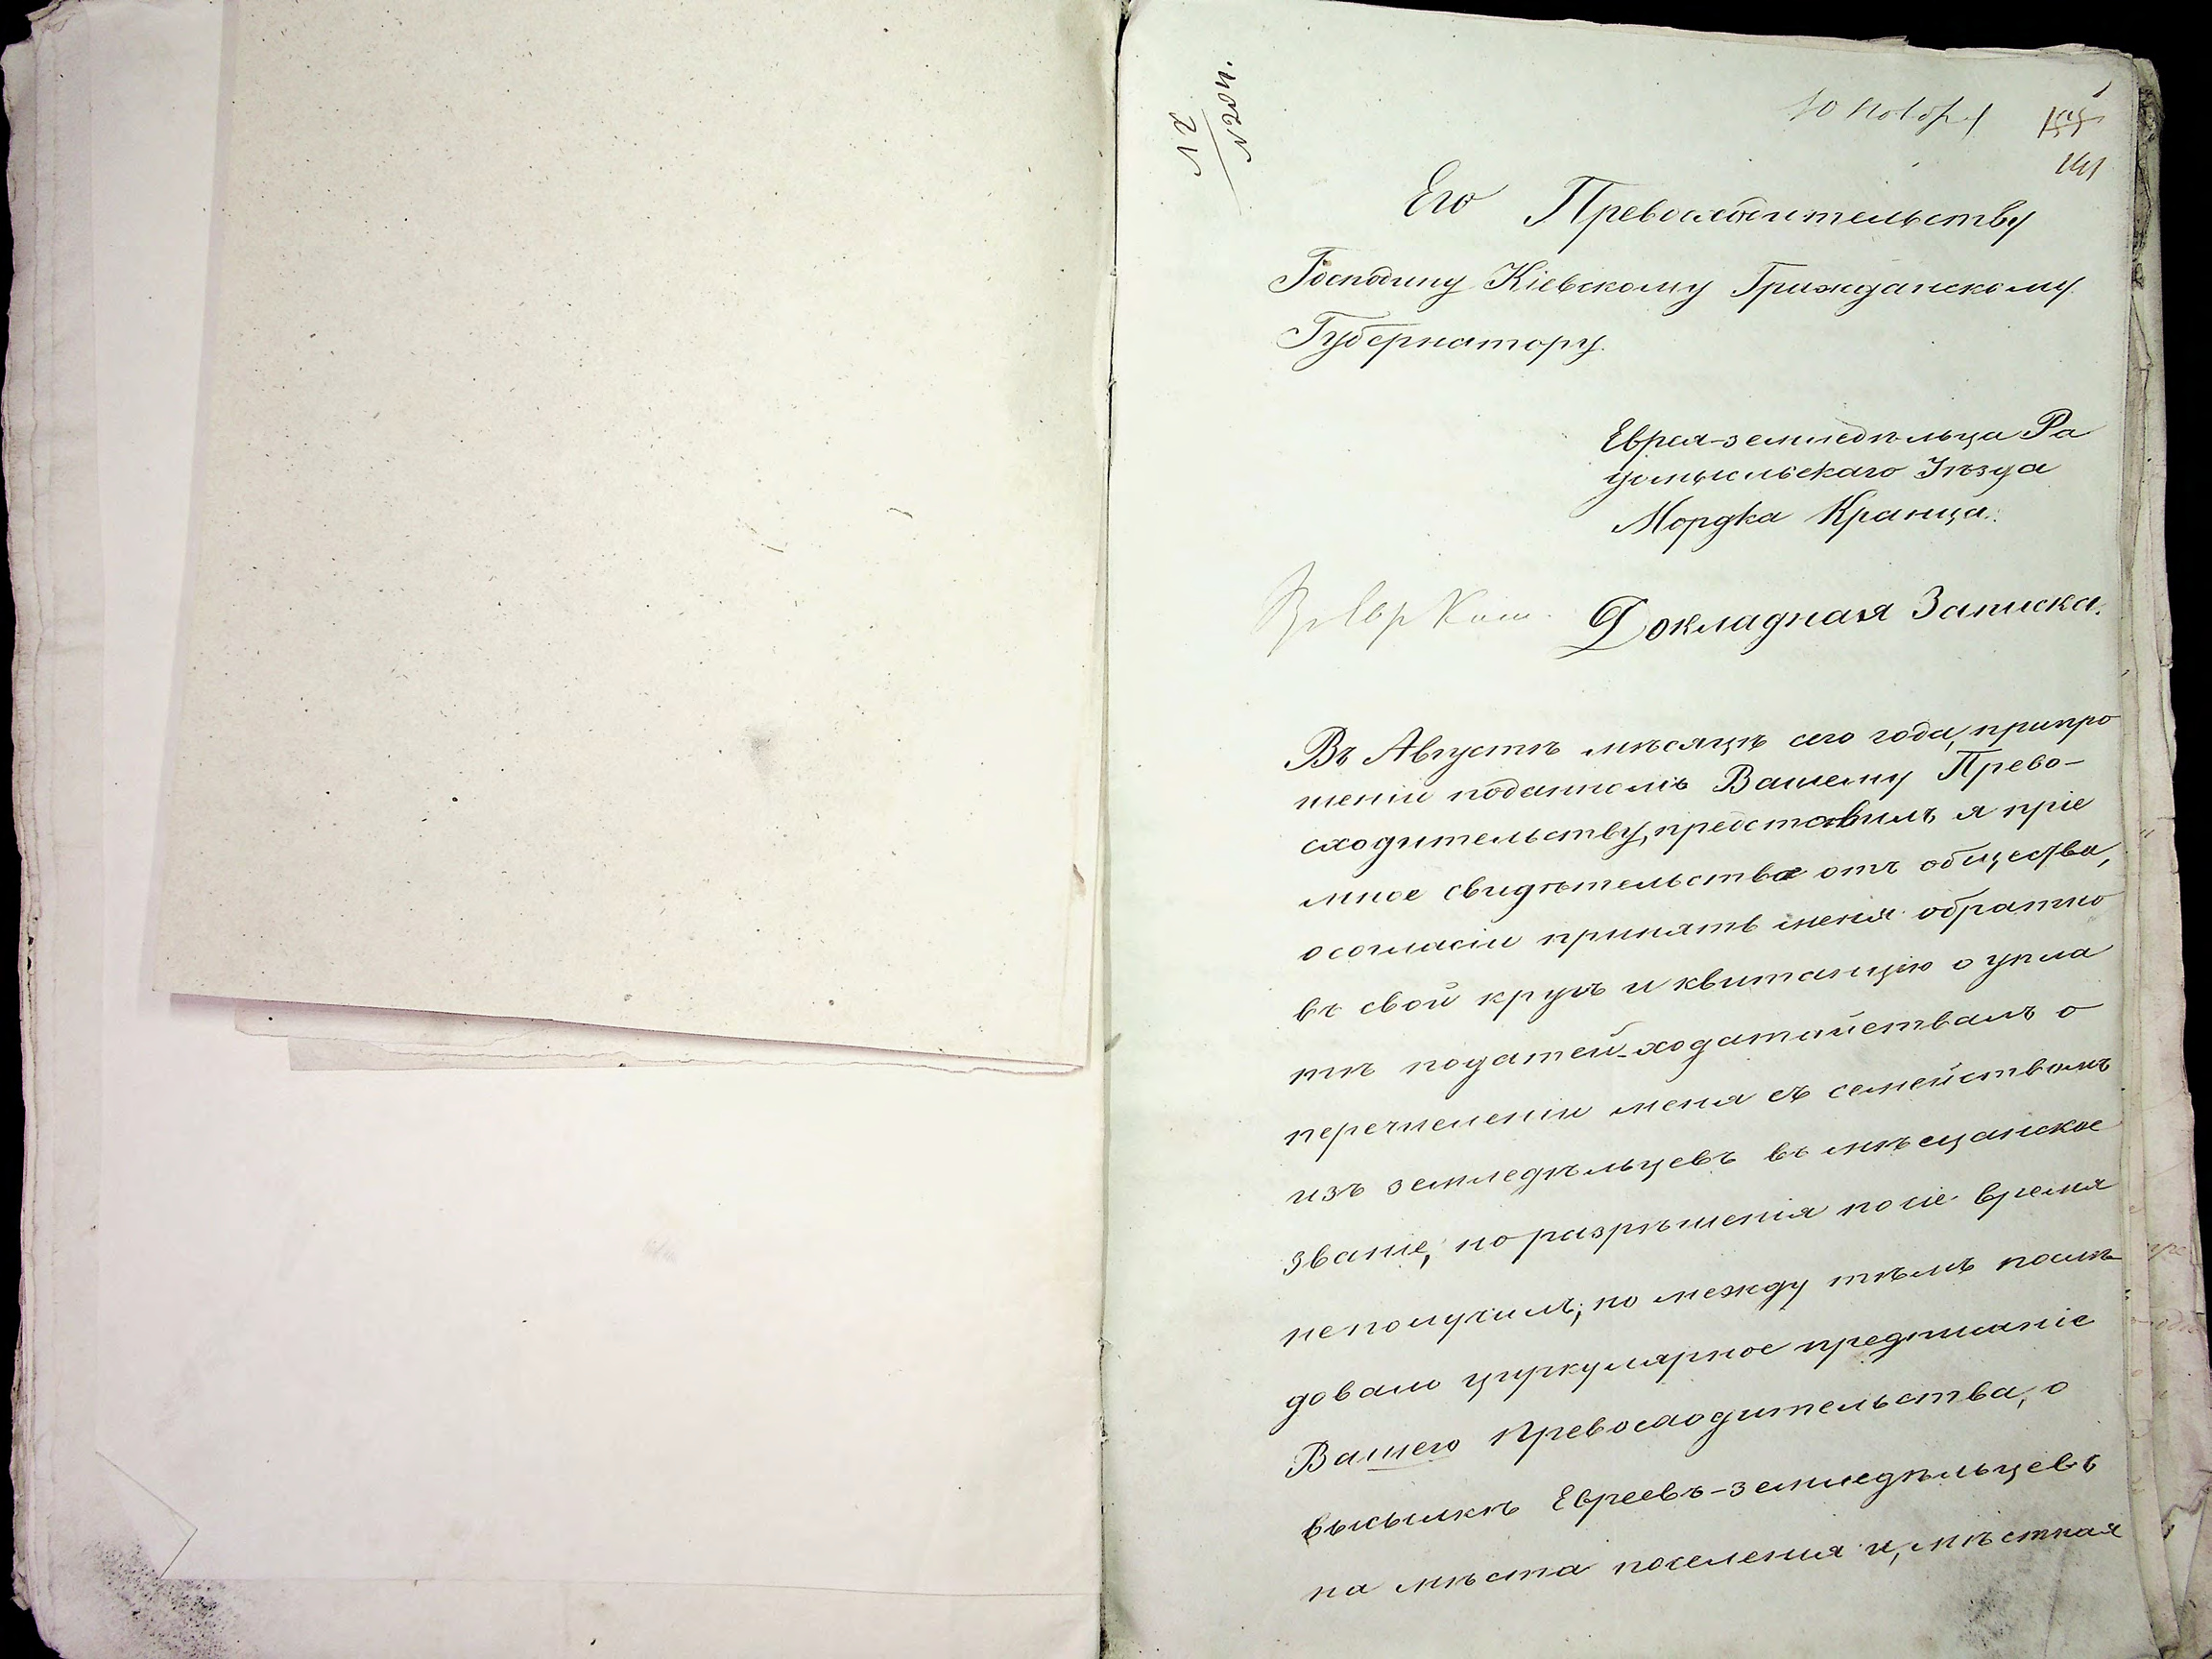 10 Ноября
141
Его Превосходительству
Господину Кіевскому Гражданскому
Губернатору.
Еврея-земледѣльца Ра
домысльскаго Уѣзда
Мордка Кранца.
Докладная Записка.
Въ Августѣ мѣсяцѣ сего года, припро
шеніи поданномъ Вашему Прево-
сходительству, представилъ я пріе
мное свидѣтельство отъ общества,
осогласіи принять меня обратно
въ свой кругъ и квитанцію о упла
тѣ податей-ходатайствалъ о
перечислении меня съ семействомъ
изъ земледѣльцевъ въ мѣщанское
званіе, но разрѣшенія по сіе время
неполучилъ; но между тѣмъ послѣ
довало циркулярное предписаніе
Вашего Превосходительства, о
высылкѣ Евреевъ-земледѣльцевъ
на мѣста поселенія и, мѣстная